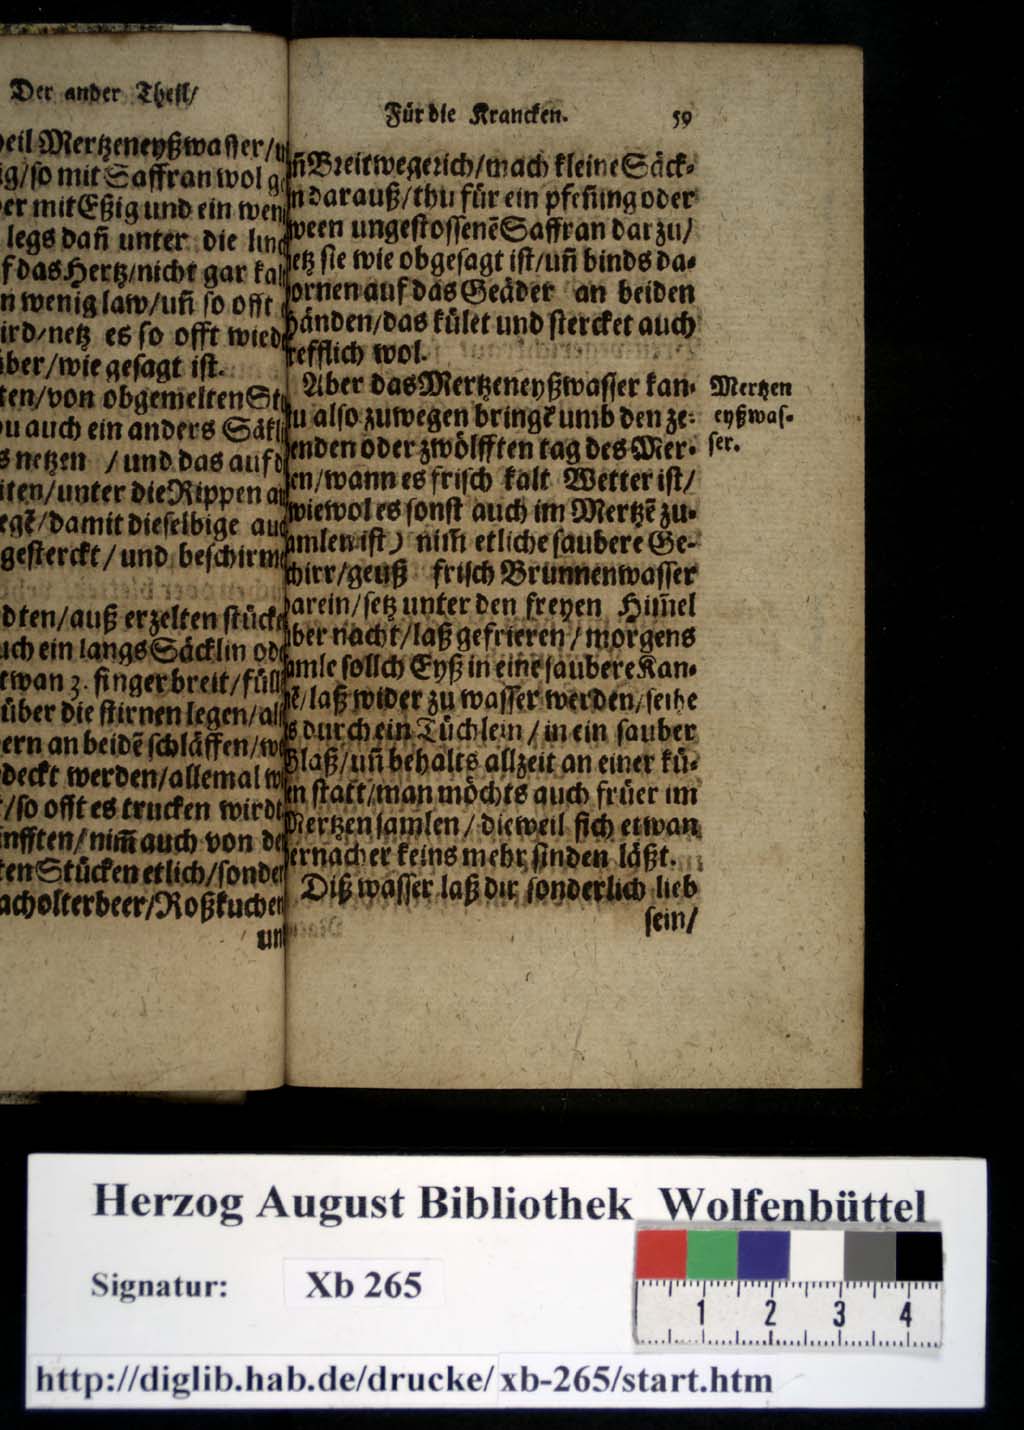 Der ander Theil/
eil Mertzeneyßwaſſer/
ig/ſo mit Saffran wol
er mit Eßig und ein wen
legs dañ unter die
f das Hertz/nicht gar kal
n wenig law/uñ ſo offt
ird/netz es ſo offt wied
über/wie geſagt iſt.
ten/von obgemelten
u auch ein anders
s netzen /und das auf
iten/unter die Rippen
egẽ/damit dieſelbige
geſterckt/und beſchirm
dten/auß erzelten ſtück
uch ein langs Säcklin
twan 3. fingerbreit/füll
über die ſtirnen legen/
ern an beidẽ ſchläffen/
deckt werden/allemal
/ſo offt es trucken wirdt
nfften/nim̃ auch von
ten Stücken etlich/ſonder
acholterbeer/Roßkuchen
un
Für die Krancken. 59
ñ Breitwegerich/mach kleine Säck-
n darauß/thu für ein pfeñing oder
ween ungeſtoſſenẽ Saffran darzu/
etz ſie wie obgeſagt iſt/uñ binds da-
ornen auf das Geäder an beiden
händen/das kület und ſtercket auch
refflich wol.
Aber das Mertzeneyßwaſſer kan-
u alſo zuwegen bringẽ umb den ze-
enden oder zwölfften tag des Mer-
en/wann es friſch kalt Wetter iſt/
wiewol es ſonſt auch im Mertzẽ zu-
amlen iſt) nim̃ etliche ſaubere Ge-
chirr/geuß friſch Brunnenwaſſer
arein/ſetz unter den freyen Him̃el
ber nacht/laß gefrieren/morgens
amle ſollch Eyß in eine ſaubere Kan-
ẽ/laß wider zu waſſer werden/ſeihe
s durch ein Tüchlein/in ein ſauber
Glaß/uñ behalts allzeit an einer kü-
n ſtatt/man möchts auch früer im
Mertzen ſamlen/dieweil ſich etwan
ernacher keins mehr finden läßt.
Diß waſſer laß dir ſonderlich lieb
ſein/
Mertzen
eyßwaſ-
ſer.
Herzog August Bibliothek Wolfenbüttel
Signatur: Xb 265
1 2 3 4
http://diglib.hab.de/drucke/xb-265/start.htm